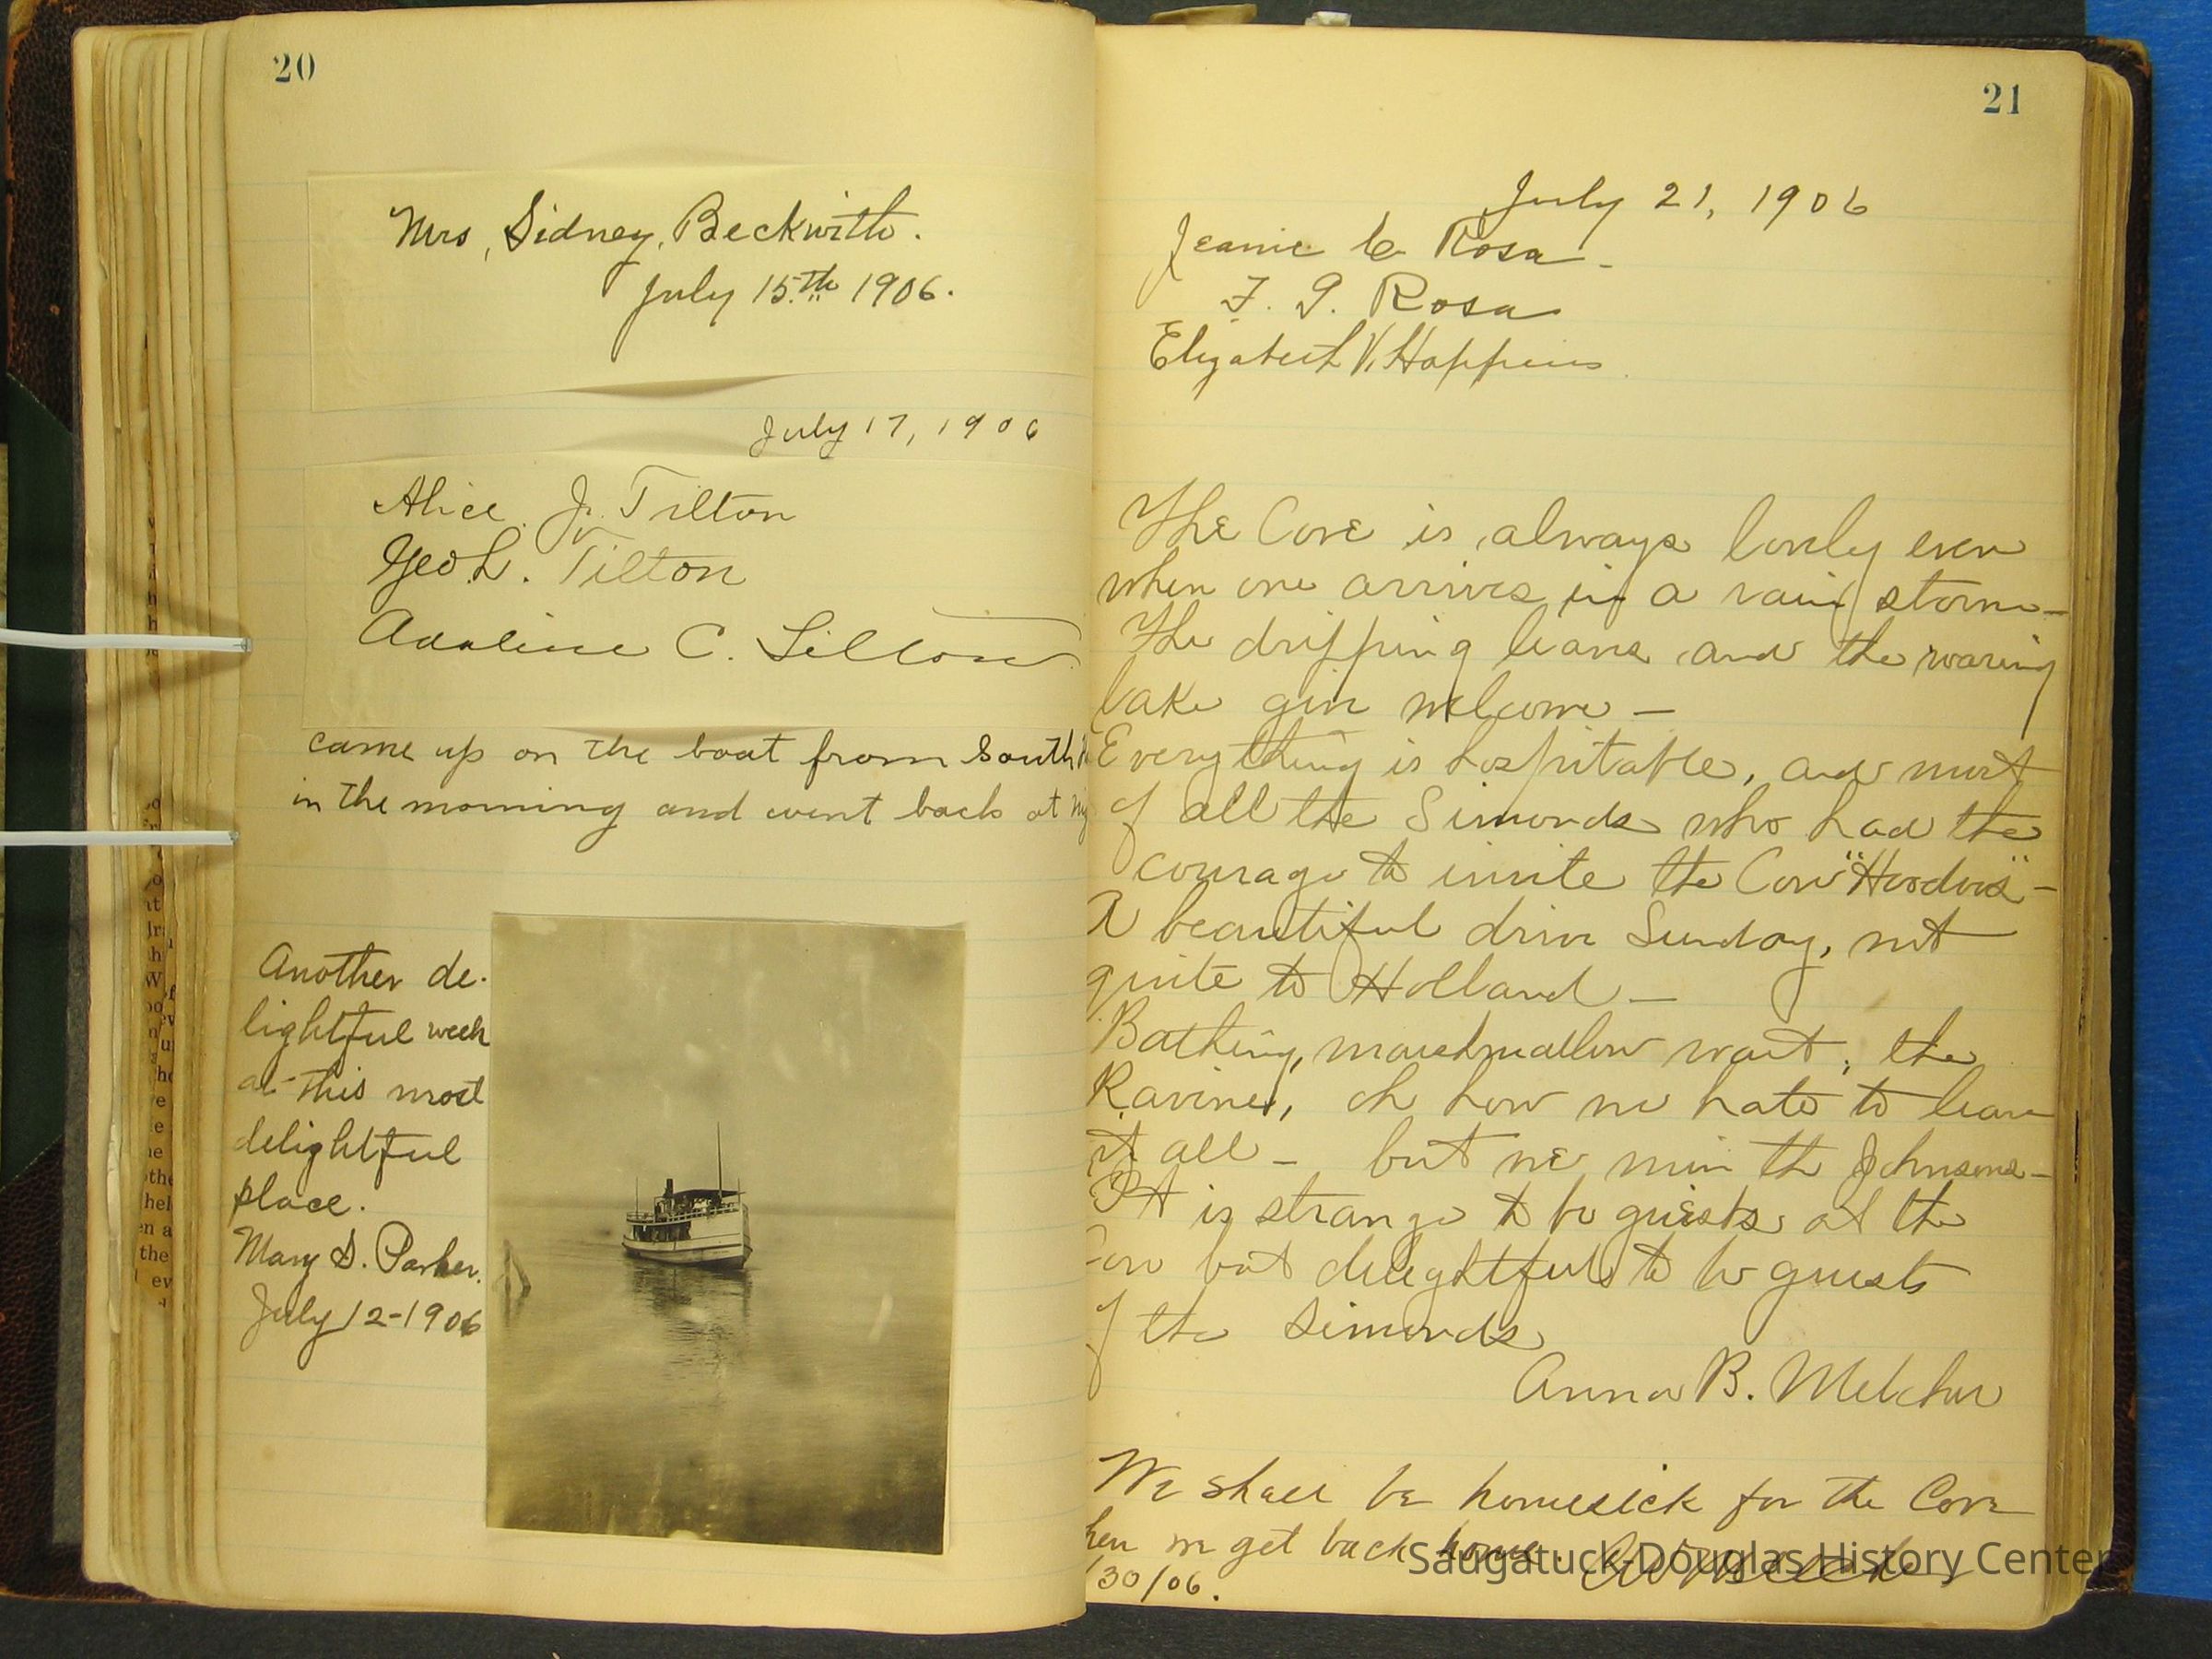 20
Mrs, Sidney, Beckwith.
July 15.th 1906.
July 17, 1906
Alice J. Tilton
Geo L. Tilton
Adaline C. Tilton
came up on the boat from South
in the morning and went back at
Another de-
lightful week
at this most
delightful
place.
Mary S. Parker.
July 12-1906
21
July 21, 1906
Jeanie C Rosa
F. G. Rosa
Elizabeth V. Hoppins
The Cove is always lovely even
when one arrives in a rain storm—
The dripping leaves and the roaring
lake give welcome —
Everything is hospitable, and most
of all the Simonds who had the
courage to invite the Cove "Hoodoos" —
A beautiful drive Sunday, not
quite to Holland —
Bathing, marshmallow roast, the
Ravines, oh how we hate to leave
it all — but we miss the Johnsons —
It is strange to be guests at the
Cove but delightful to be guests
of the Simonds
Anna B. Melcher
We shall be homesick for the Cove
when we get back home.
/30/06.
Saugatuck-Douglas History Center